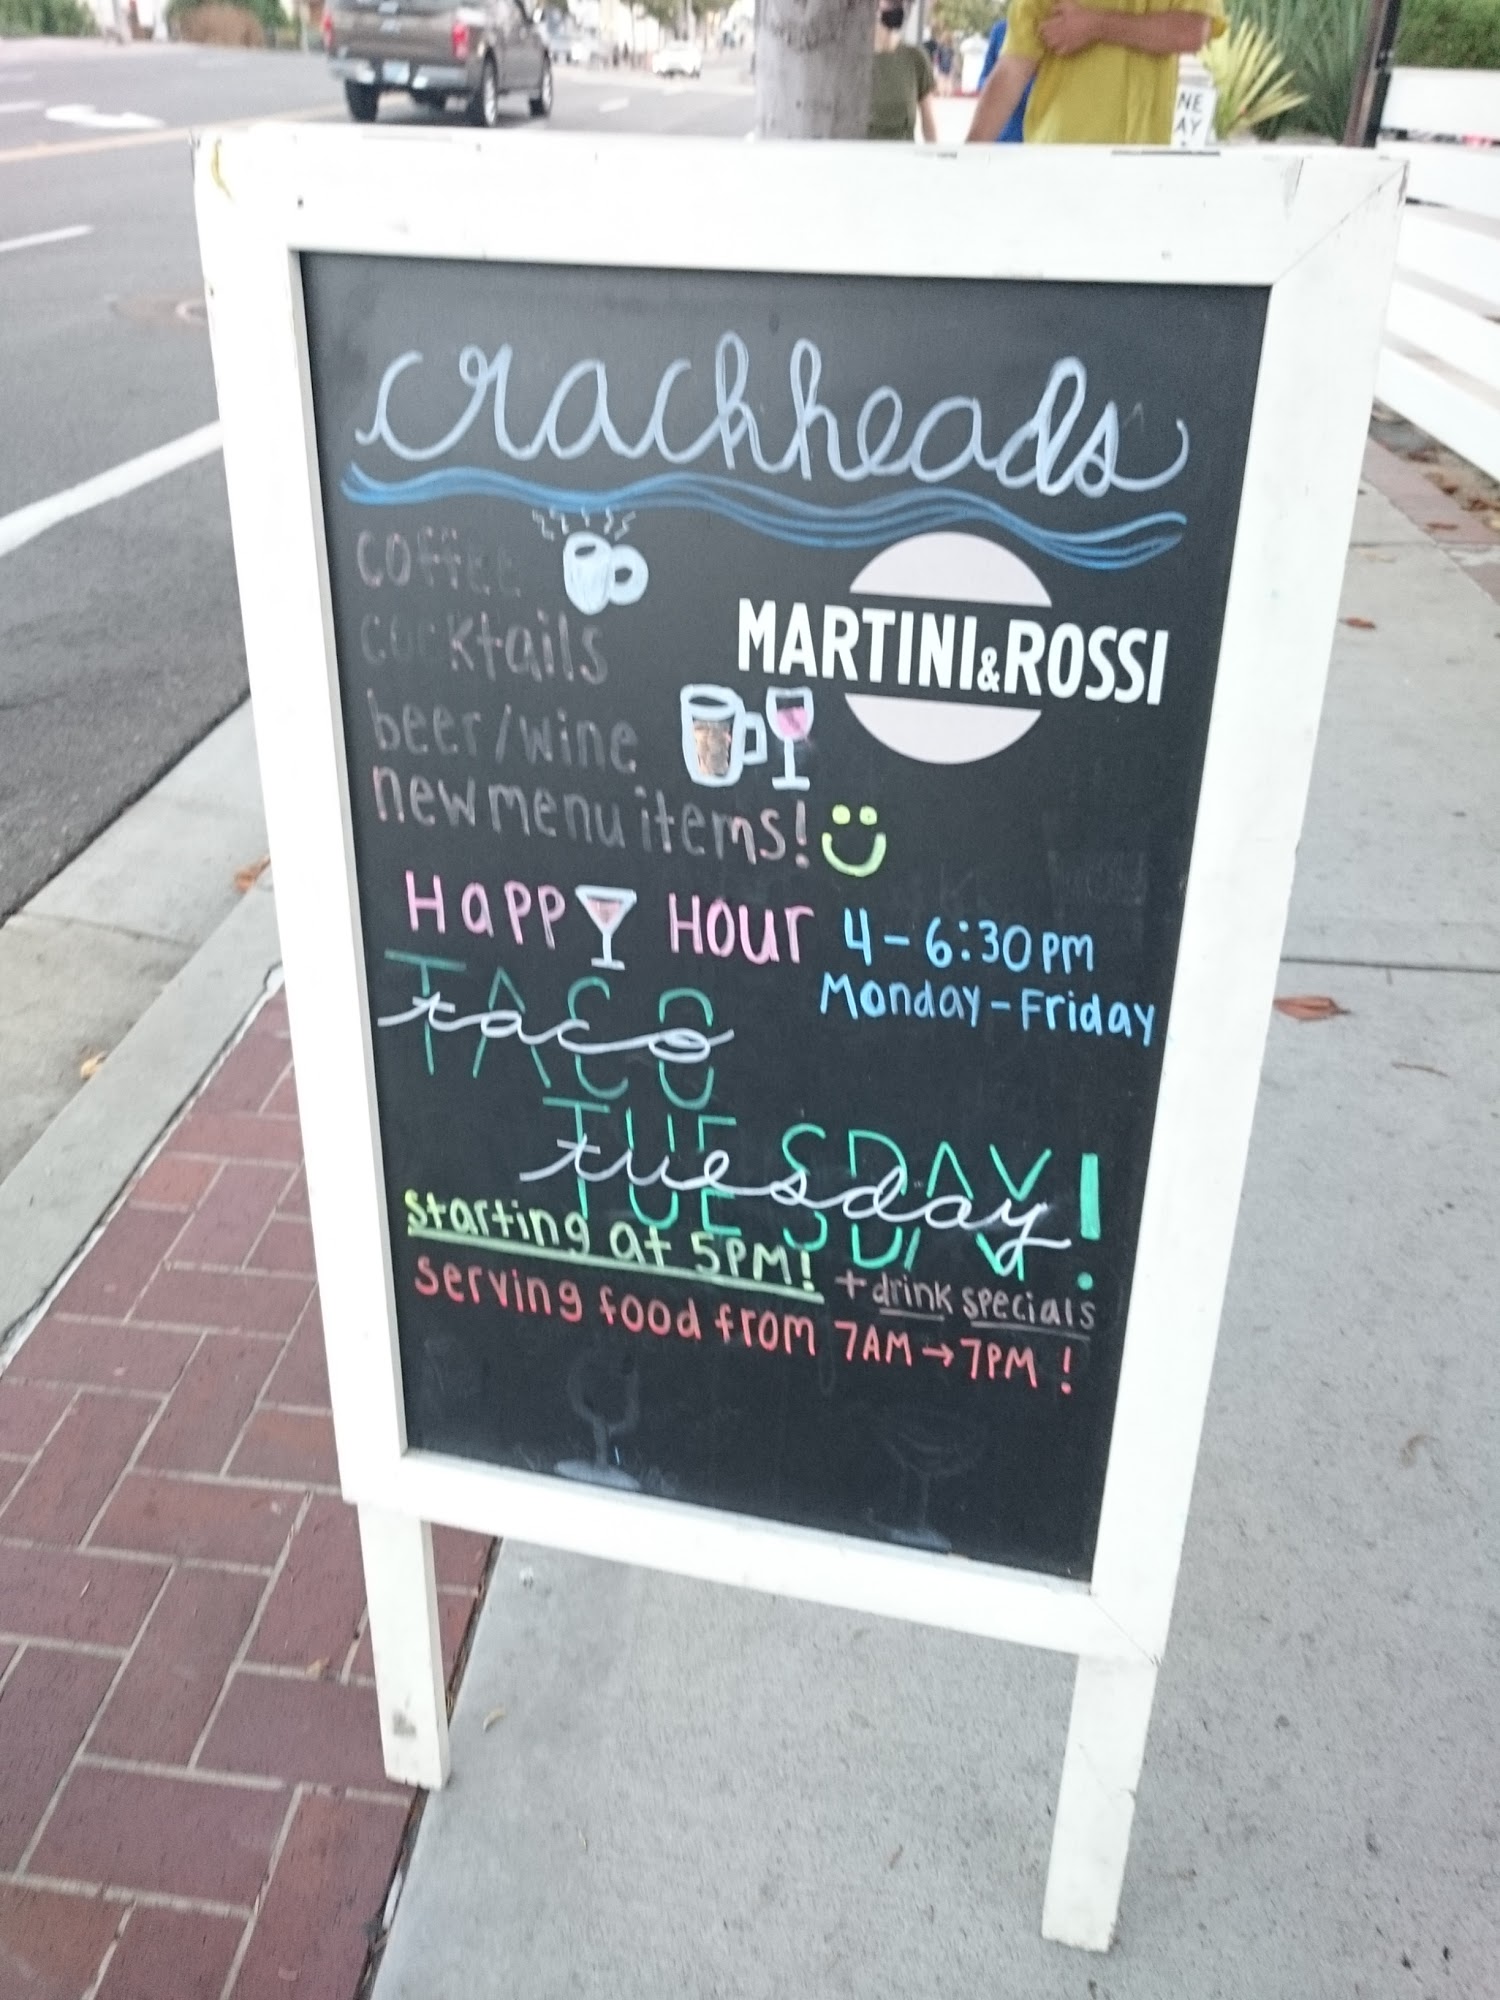 crackheads
coffee
cocktails
MARTINI & ROSSI
beer/wine
new menu items!
HaPPY HOUr
4-6:30PM
Monday-Friday
TACO
taco
TUESDAY!
tuesday
starting at 5PM!
+ drink specials
serving food from 7AM → 7PM!
NE
AY